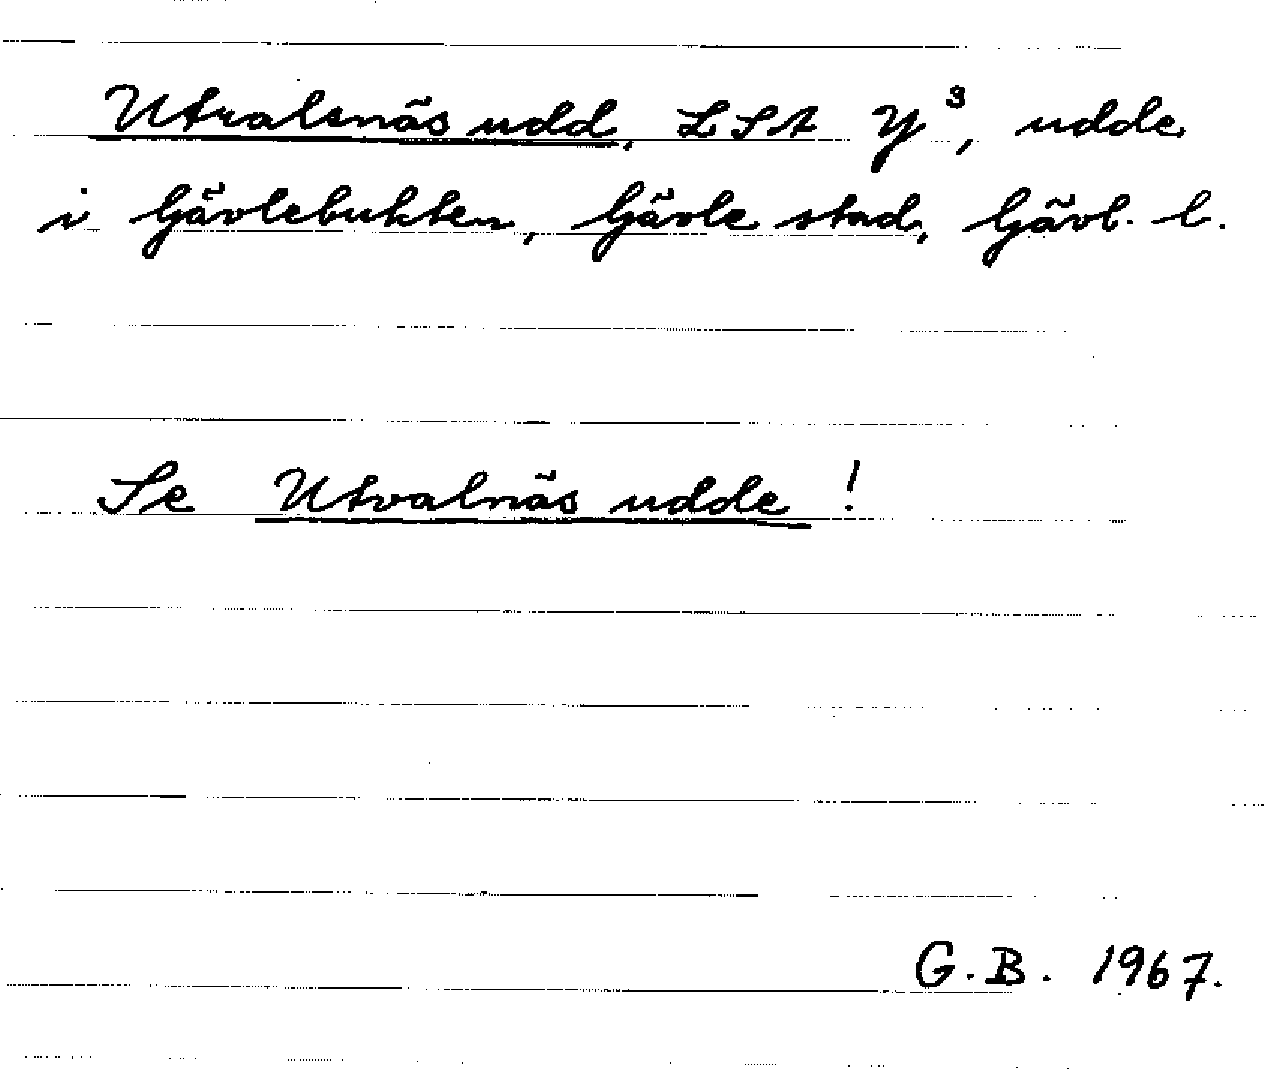 Utvalsnäs udd, LSA Y³, udde
i Gävlebukten, Gävle stad, Gävl. l.
Se Utvalnäs udde!
G.B. 1967.